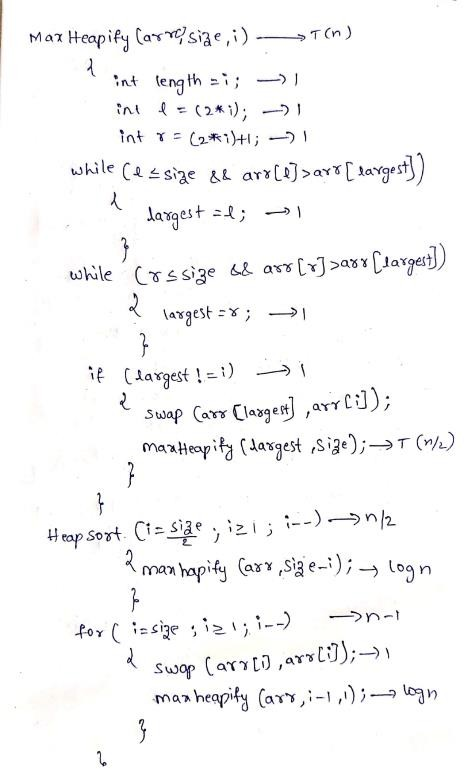 Max Heapify (arr, size, i) → T(n)
{
int length = i; → 1
int l = (2*i); → 1
int r = (2*i)+1; → 1
while (l ≤ size && arr[l] > arr[largest])
{
largest = l; → 1
}
while (r ≤ size && arr[r] > arr[largest])
{ largest = r; → 1
}
if (largest != i) → 1
{
swap (arr [largest], arr[i]);
maxHeapify (largest, size); → T(n/2)
}
}
Heap sort (i = size/2 ; i ≥ 1 ; i--) → n/2
{ maxhapify (arr, size-i); → log n
}
for ( i = size ; i ≥ 1 ; i--) → n-1
{ swap (arr[1], arr[i]); → 1
maxheapify (arr, i-1, 1); → log n
}
}